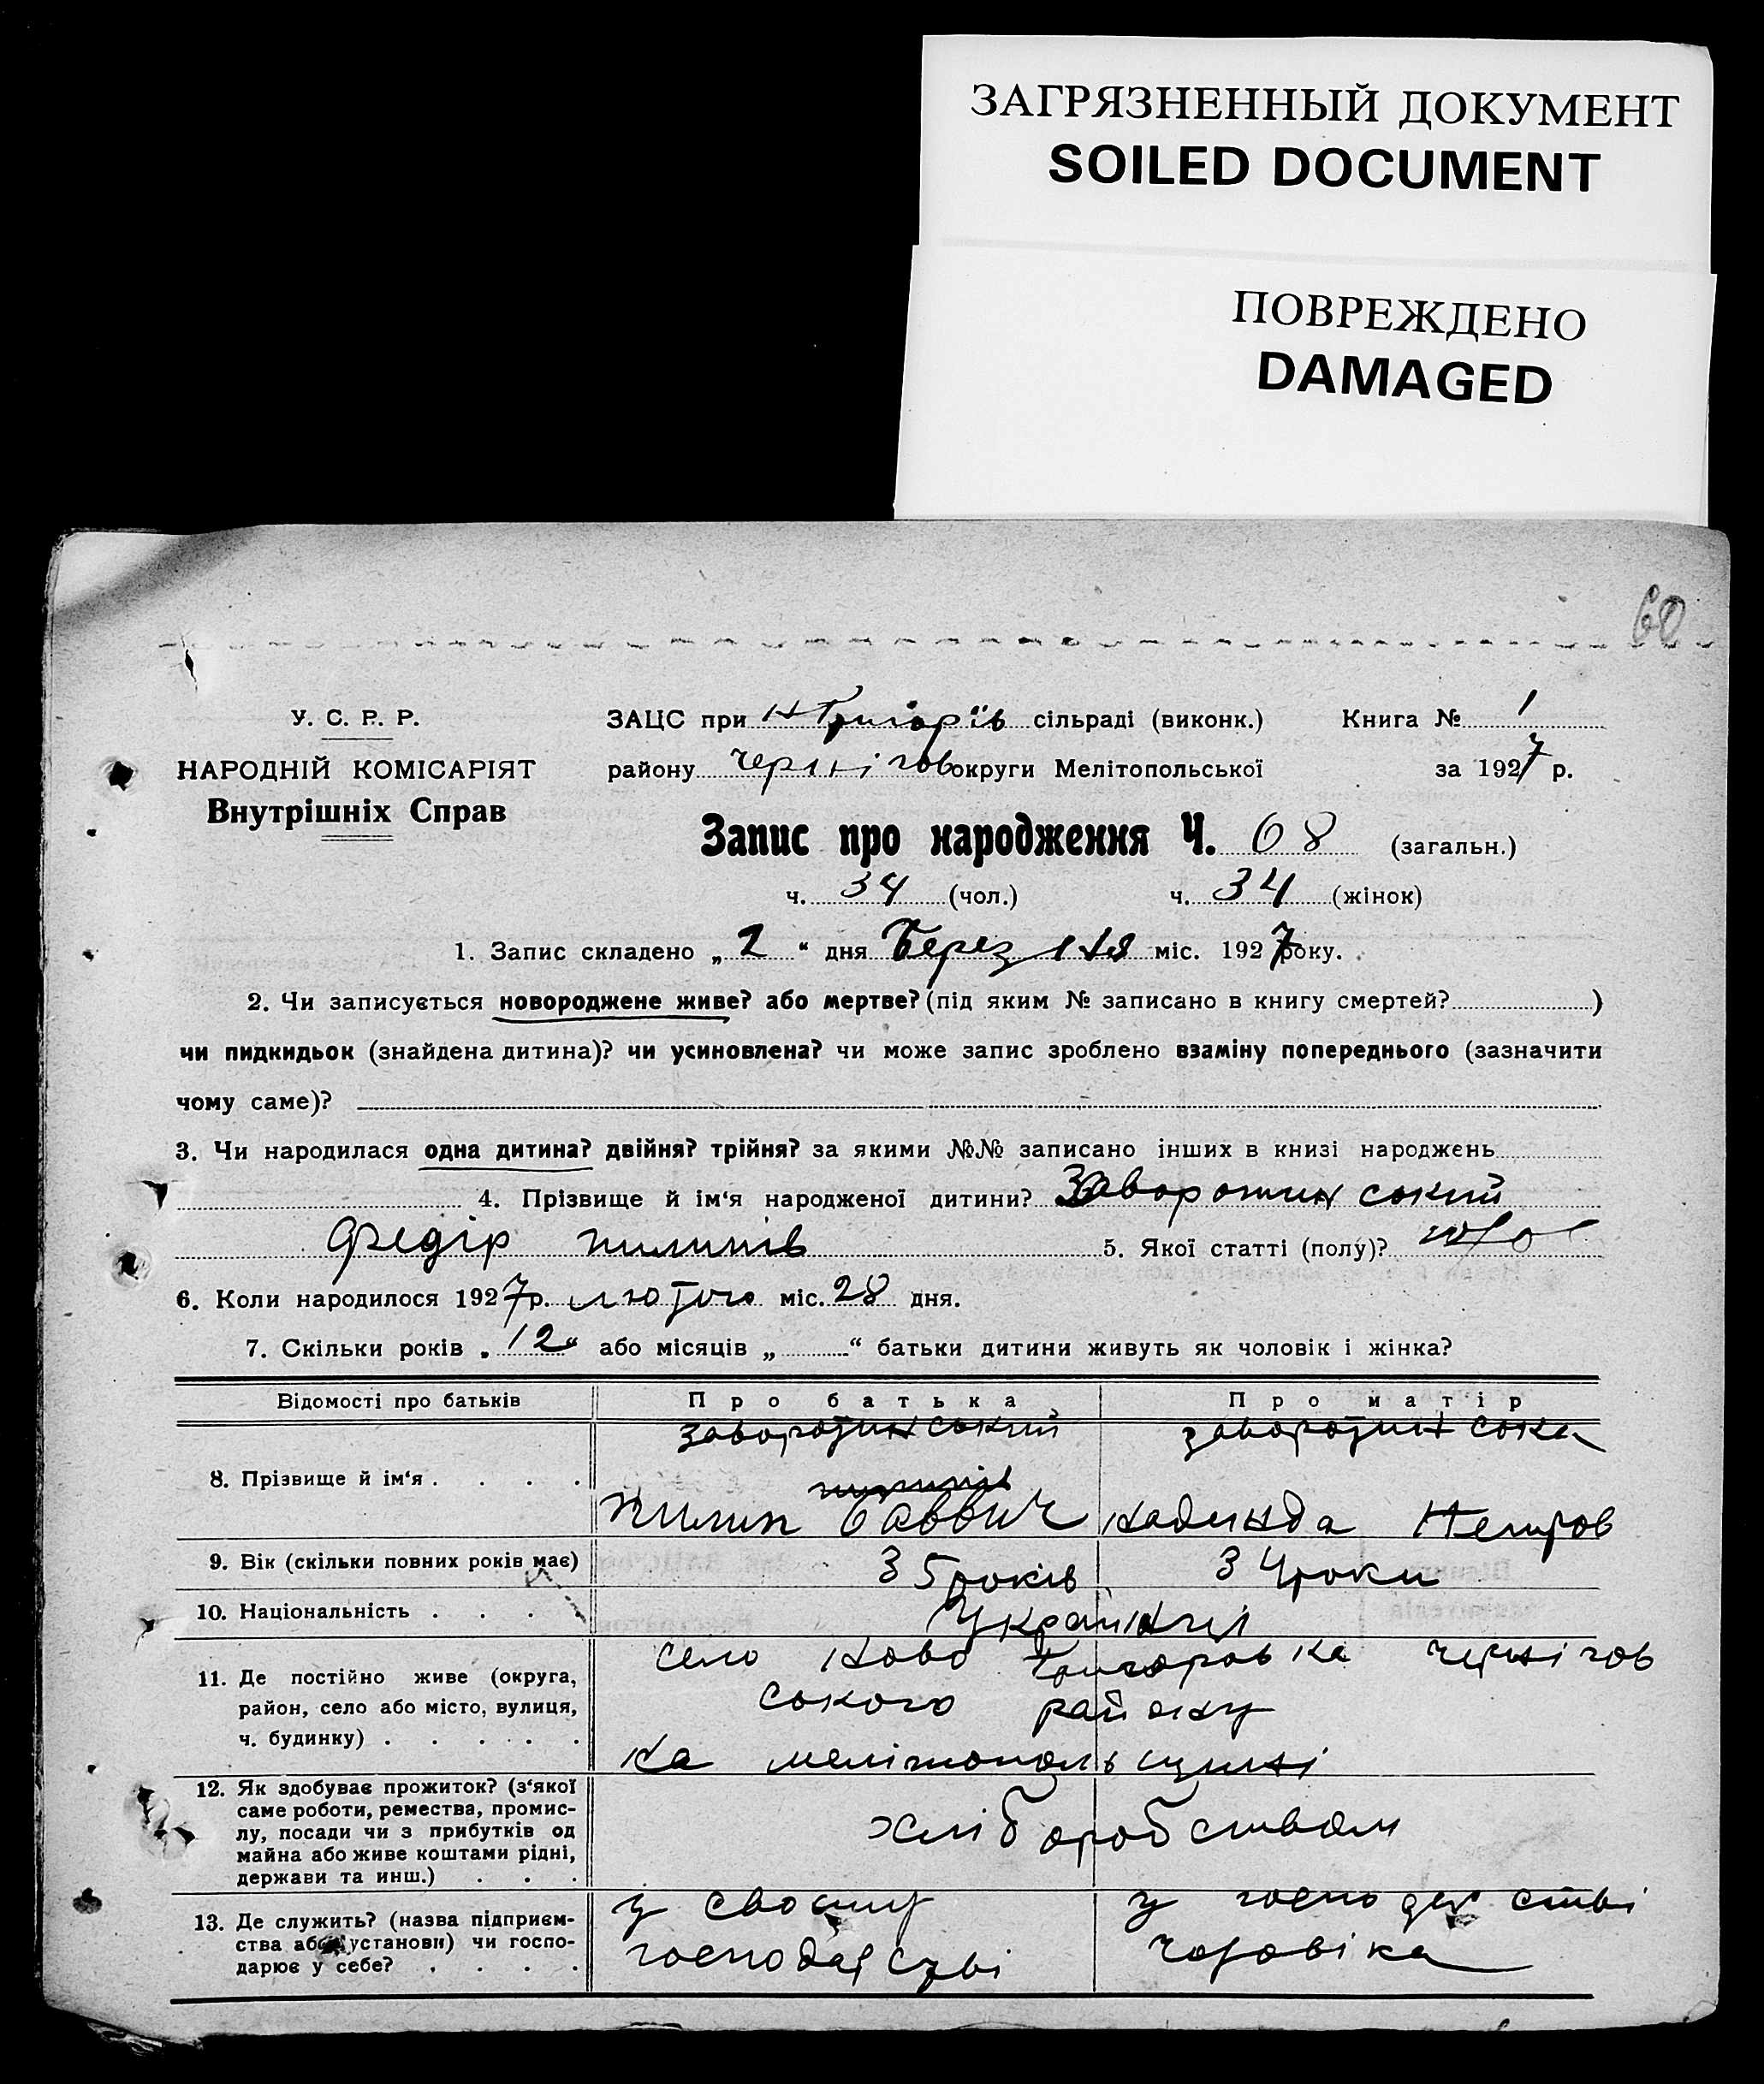 ЗАГРЯЗНЕННЫЙ ДОКУМЕНТ
SOILED DOCUMENT
ПОВРЕЖДЕНО
DAMAGED
60
У. С. Р. Р.
НАРОДНІЙ КОМІСАРІЯТ
Внутрішніх Справ
ЗАЦС при Н Григорїв сільраді (виконк.) Книга № 1
району Чернігов округи Мелітопольської за 1927 р.
Запис про народження Ч. 68 (загальн.)
ч. 34 (чол.) ч. 34 (жінок)
1. Запис складено „ 2 “ дня Березня міс. 1927 року.
2. Чи записується новороджене живе? або мертве? (під яким № записано в книгу смертей? )
чи пидкидьок (знайдена дитина)? чи усиновлена? чи може запис зроблено взаміну попереднього (зазначити
чому саме)?
3. Чи народилася одна дитина? двійня? трійня? за якими №№ записано інших в книзі народжень
4. Прізвище й ім‘я народженої дитини? Заворотинський
Федір Пилипів 5. Якої статті (полу)? чол
6. Коли народилося 1927 р. лютого міс. 28 дня.
7. Скільки років „ 12 “ або місяців „ “ батьки дитини живуть як чоловік і жінка?
Відомості про батьків Про батька Про матір
заворотинський заворотинська
8. Прізвище й ім‘я . . . .
пилип Саввич надинда Петров
9. Вік (скільки повних років має) 35 років 34 роки
10. Національність . . . . Українці
11. Де постійно живе (округа, район, село або місто, вулиця, ч. будинку) . . . . .
село Ново Григоровка Чернігов
ського району
на мелітопольщині
12. Як здобуває прожиток? (з‘якої саме роботи, ремества, промислу, посади чи з прибутків од майна або живе коштами рідні, держави та инш.) . . .
хліборобством
13. Де служить? (назва підприємства або установи) чи господарює у себе? . . . .
у своєму у господарстві
господарстві чоловіка